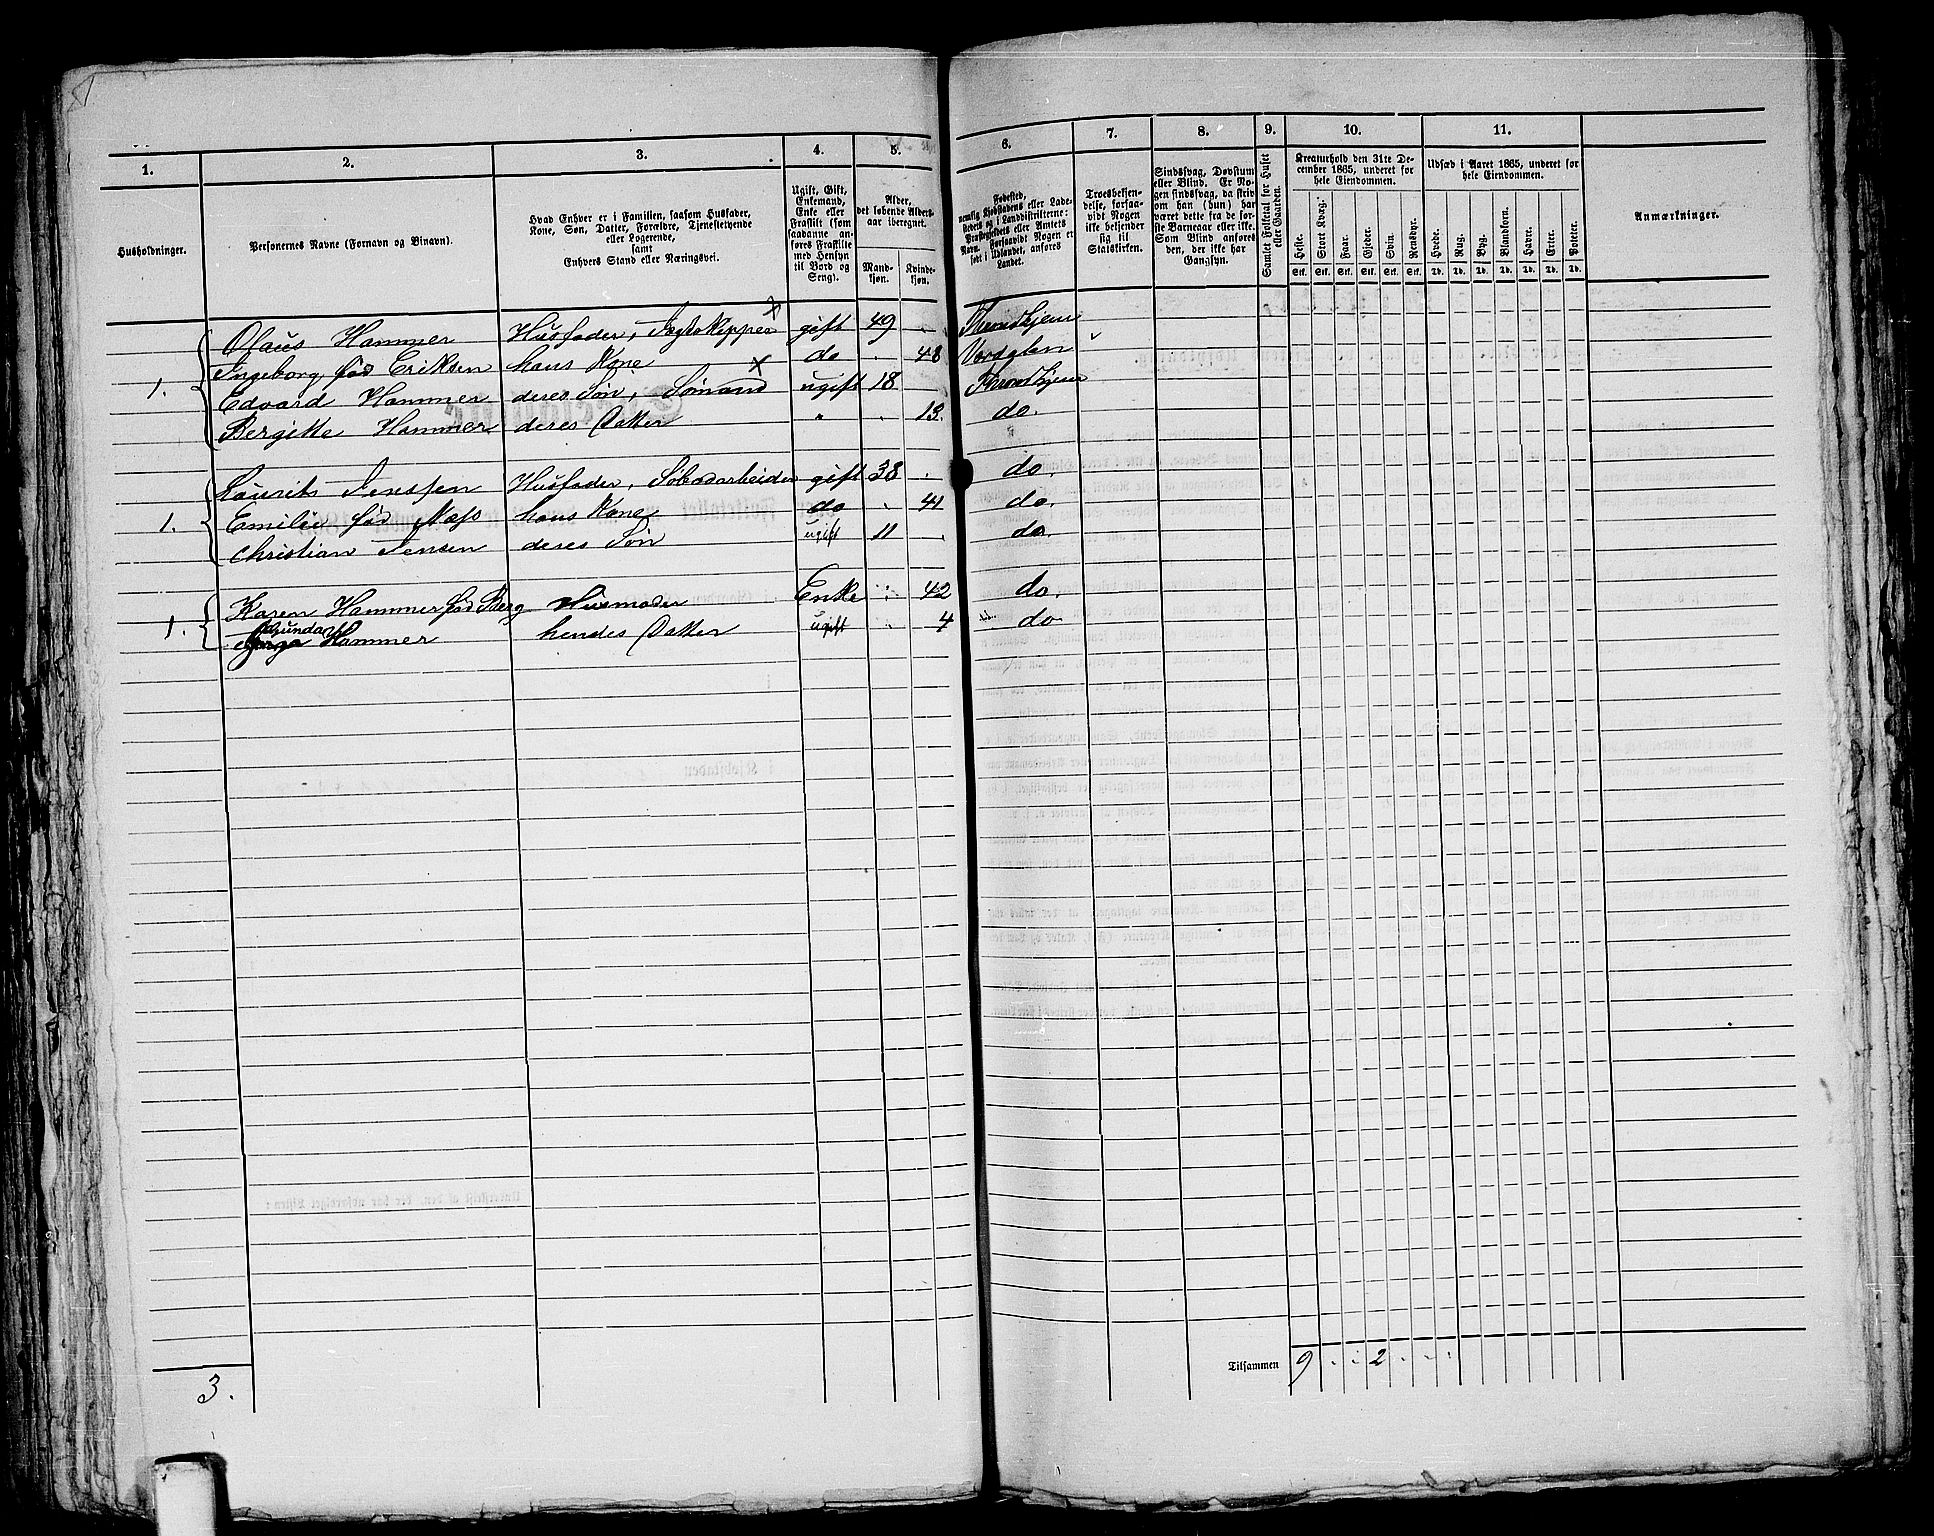 1. 2. 3. 4. 5. 6. 7. 8. 9. 10. 11.
Husholdninger.
Personernes Navne (Fornavn og Binavn).
Hvad Enhver er i Familien, saasom Husfader,
Kone, Søn, Datter, Forældre, Tjenstetyende
eller Logerende,
samt
Enhvers Stand eller Næringsvei.
Ugift, Gift,
Enkemand,
Enke eller
Fraskilt (som
saadanne an-
føres Fraskilte
med Hensyn
til Bord og
Seng).
Alder,
det løbende Alders-
aar iberegnet.
Mand-
kjøn.
Kvinde-
kjøn.
Fødested,
nemlig Kjøbstadens eller Lade-
stedets og i Landdistrikterne:
Præstegjeldets eller Amtets
Navn. Forsaavidt Nogen er
født i Udlandet, anføres
Landet.
Troesbekjen-
delse, forsaa-
vidt Nogen
ikke bekjender
sig til
Statskirken.
Sindssvag, Døvstum
eller Blind. Er No-
gen sindssvag, da skriv
om han (hun) har
været dette fra de før-
ste Barneaar eller ikke.
Som Blind anføres
den, der ikke har
Gangsyn.
Samlet Folketal for Huset
eller Gaarden.
Kreaturhold den 31te De-
cember 1865, underet for
hele Eiendommen.
Heste. Stort Kvæg. Faar. Gjeder. Svin. Rensdyr.
Stk. Stk. Stk. Stk. Stk. Stk.
Udsæd i Aaret 1865, underet for
hele Eiendommen.
Hvede. Rug. Byg. Blandkorn. Havre. Erter. Poteter.
Td. Td. Td. Td. Td. Td. Td.
Anmærkninger.
Olaus Hammer Husfader, Jægteskipper x gift 49 . Throndhjem
Ingeborg, fød Eriksen hans Kone do . 48
1. Edvard Hammer deres Søn, Sømand x ugift 18 Throndhjem
Bergitte Hammer deres Datter " . 13. do.
Laurits Jenssen Husfader, gift 38 . do.
1. Emilie fød Næss hans Kone do . 41 do.
Christian Jensen deres Søn ugift 11 . do.
Karen Hammer fød Berg Husmoder Enke . 42 do.
1. Hammer hendes Datter ugift . 4 do
Tilsammen 9 . . 2 . . .
3.